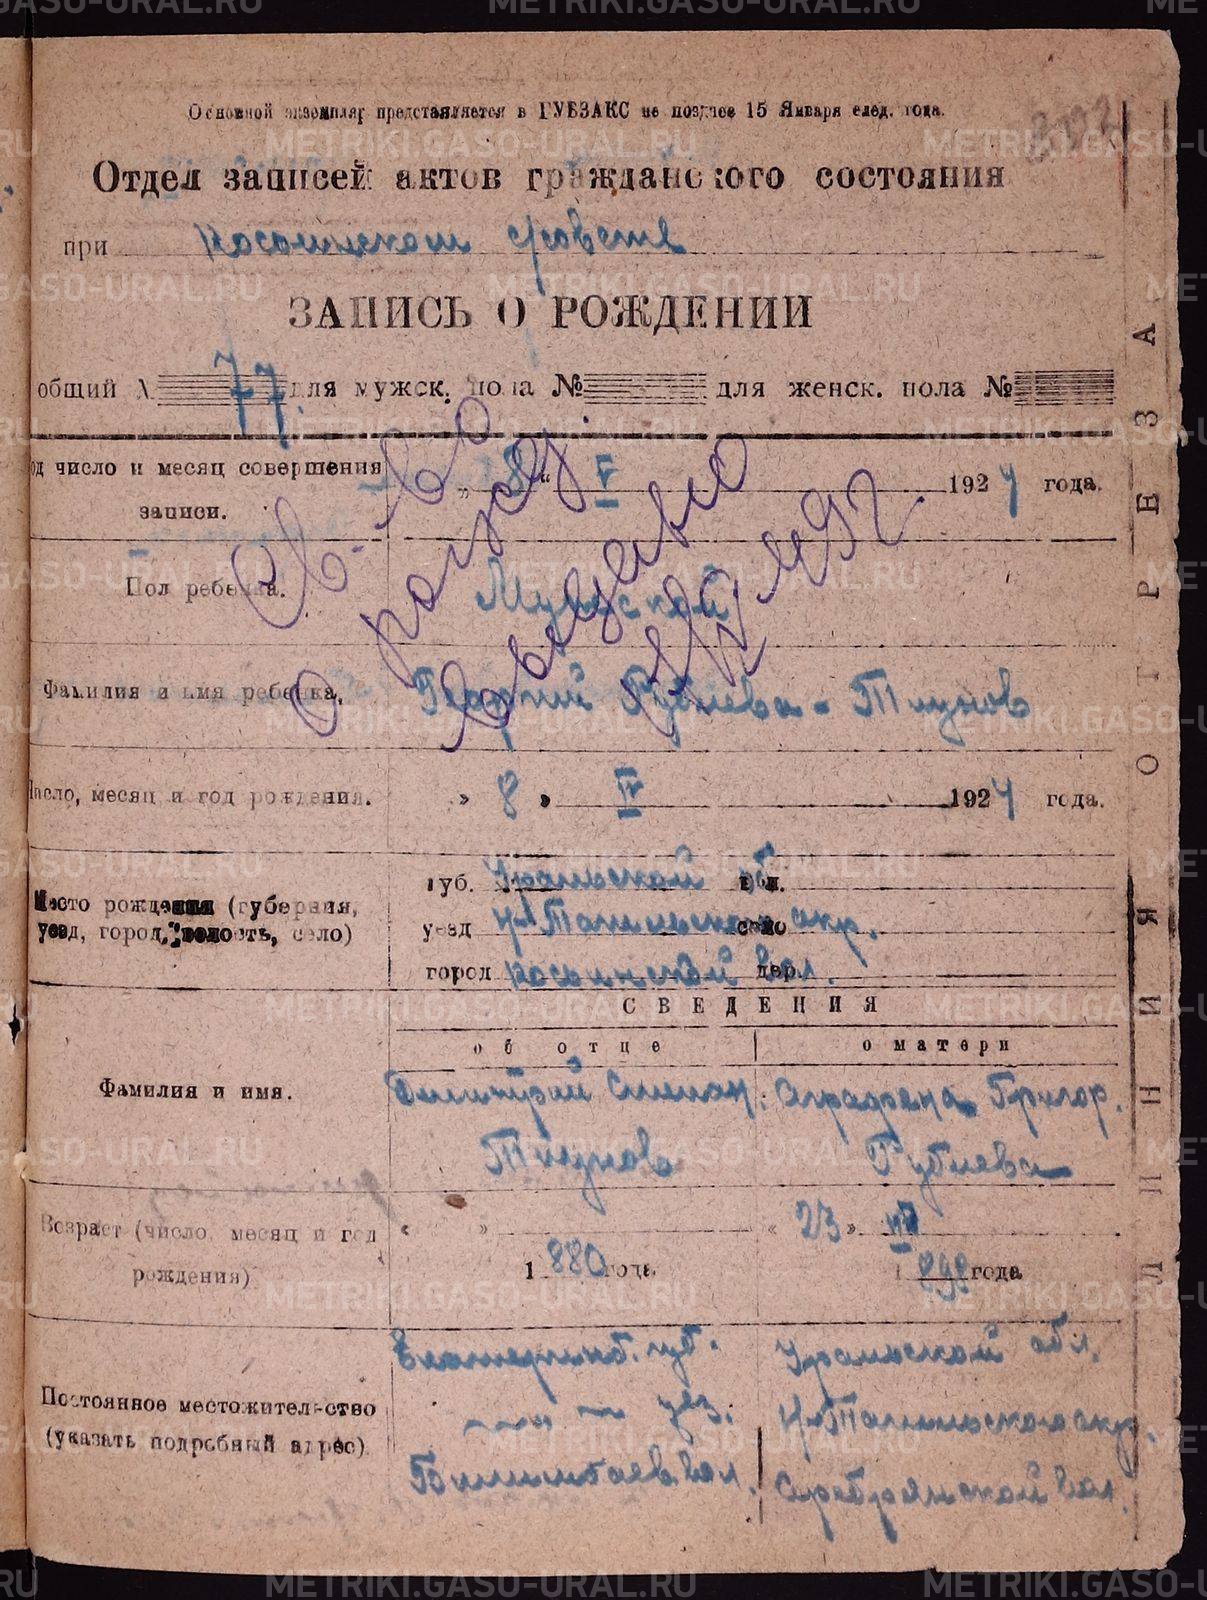 Основной экземпляр представляется в ГУБЗАКС не позднее 15 Января след. года.
Отдел записей актов гражданского состояния
при
ЗАПИСЬ О РОЖДЕНИИ
общий № 77 для мужск. пола № для женск. пола №
Год число и месяц совершения записи. „ 8 “ V 1924 года.
Пол ребенка. Мужской
Фамилия и имя ребенка. Георгий Рублева - Тиунов
Число, месяц и год рождения. » 8 » IV 1924 года.
Место рождения (губерния, уезд, город, волость, село)
губ. Уральской обл.
уезд Н-Тагильского окр. село
город вол. дер.
СВЕДЕНИЯ
об отце о матери
Фамилия и имя. Дмитрий Степан. Аграфена Григор.
Тиунов Рублева
Возраст (число, месяц и год рождения) « » « 23 »
1880 года 1898 года
Постоянное местожительство (указать подробный адрес)
Екатеринб. губ. Уральской обл.
уез. Н-Тагильского окр.
Билимбаев вол. Серебрянской вол.
Св-во
о рожд.
выдано
ЛИНИЯ ОТРЕЗА
METRIKI.GASO-URAL.RU